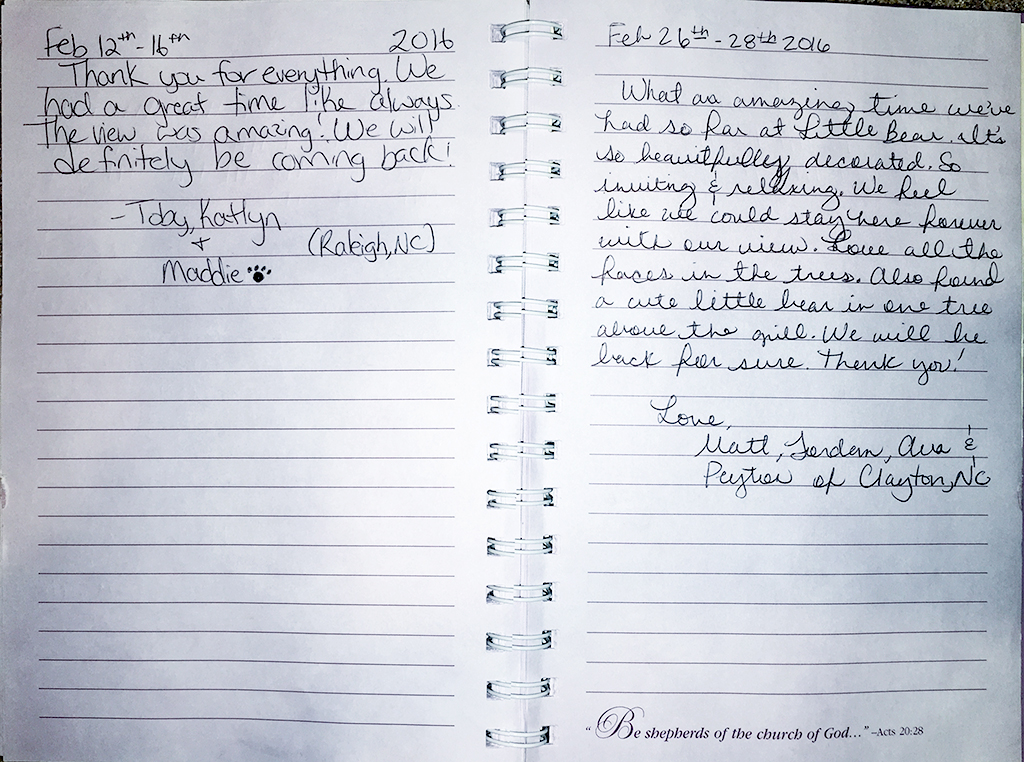 Feb 12th - 16th 2016
Thank you for everything. We
had a great time like always.
The view was amazing! We will
definitely be coming back!
- Toby, Katlyn
+ (Raleigh, NC)
Maddie
Feb 26th - 28th 2016
What aa amazing time we've
had so far at Little Bear. It's
so beautifully decorated. So
inviting & relaxing. We feel
like we could stay here forever
with our view. Love all the
faces in the trees. Also found
a cute little bear in one tree
above the grill. We will be
back for sure. Thank you!
Love,
Matt, Jordan, Ava &
Peyton of Clayton, NC
"Be shepherds of the church of God..." –Acts 20:28